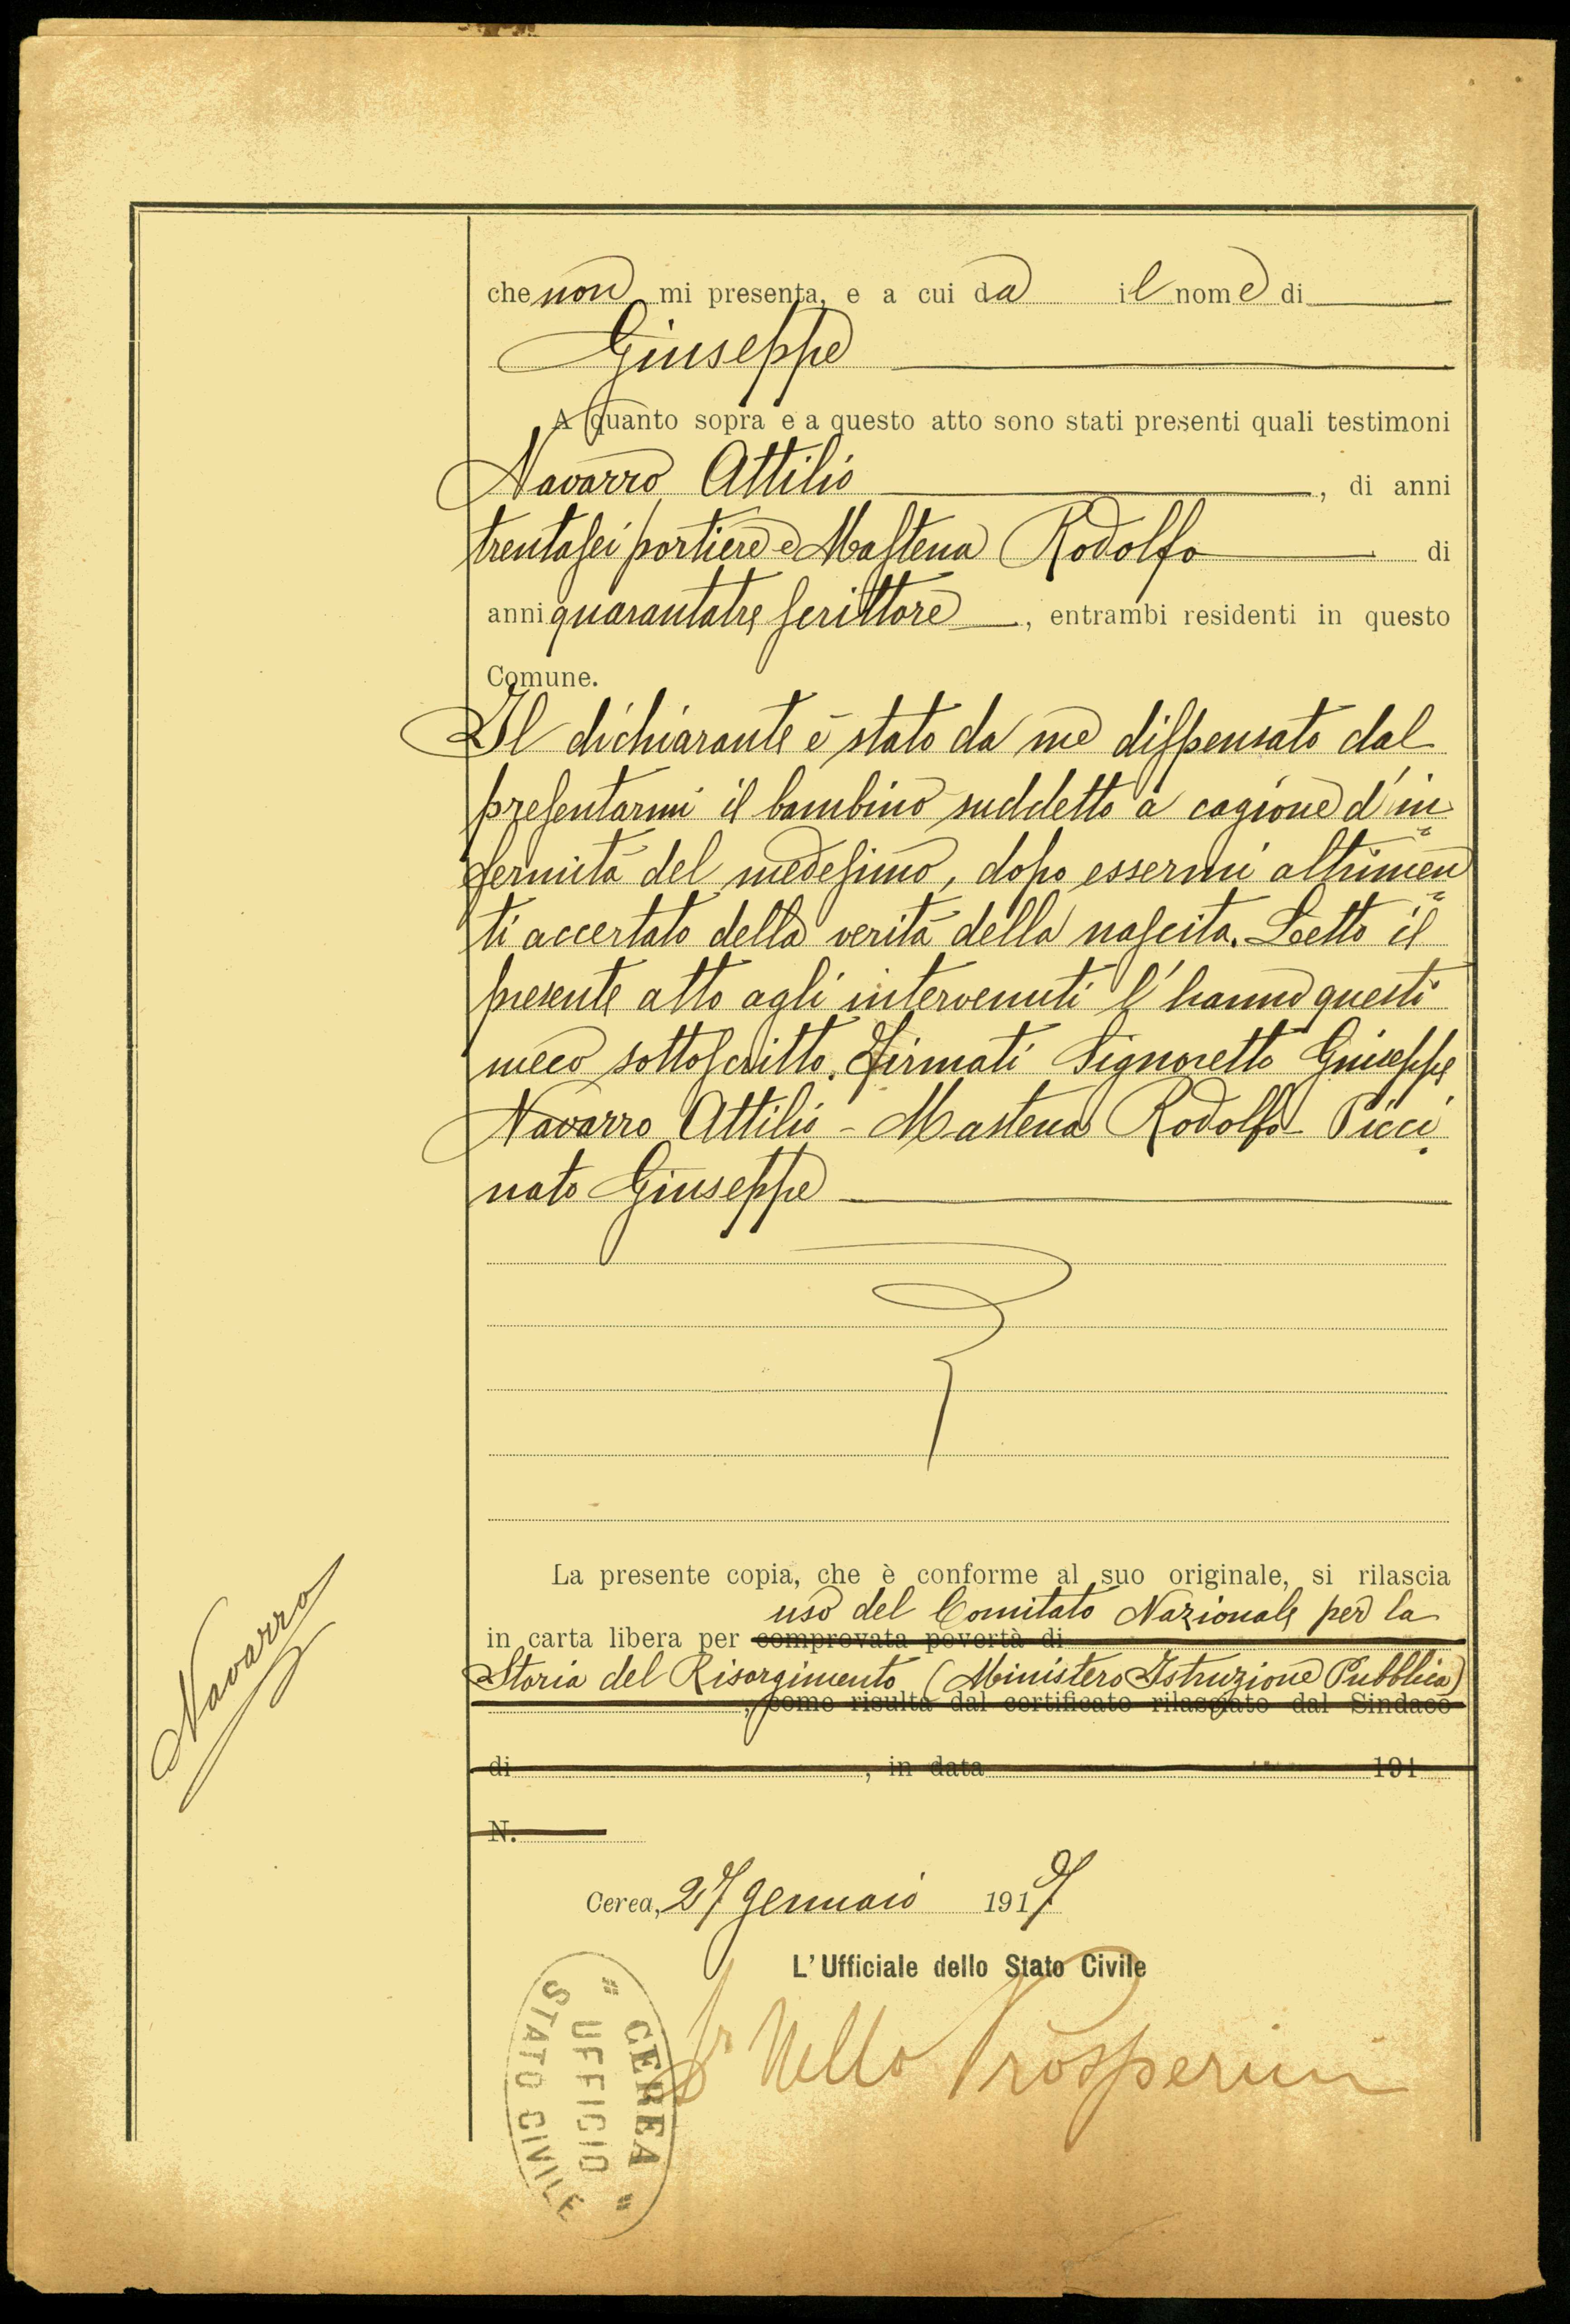 che non mi presenta, e a cui da il nome di
Giuseppe
A quanto sopra e a questo atto sono stati presenti quali testimoni
Navarro Attilio, di anni
trentasei portiere e Mastena Rodolfo di
anni quarantatre scrittore, entrambi residenti in questo
Comune.
Il dichiarante è stato da me dispensato dal
presentarmi il bambino suddetto a cagione d'in=
fermità del medesimo, dopo essermi altrimen=
ti accertato della verità della nascita. Letto il
presente atto agli intervenuti l'hanno questi
meco sottoscritto. Firmati Signoretto Giuseppe
Navarro Attilio - Mastena Rodolfo - Picci
nato Giuseppe
La presente copia, che è conforme al suo originale, si rilascia
uso del Comitato Nazionale per la
in carta libera per comprovata povertà di
Storia del Risorgimento (Ministero Istruzione Pubblica)
, come risulta dal certificato rilasciato dal Sindaco
di , in data 191
N.
Navarro
Cerea, 27 gennaio 1917
L'Ufficiale dello Stato Civile
Nello Prosperini
" CEREA "
UFFICIO
STATO CIVILE